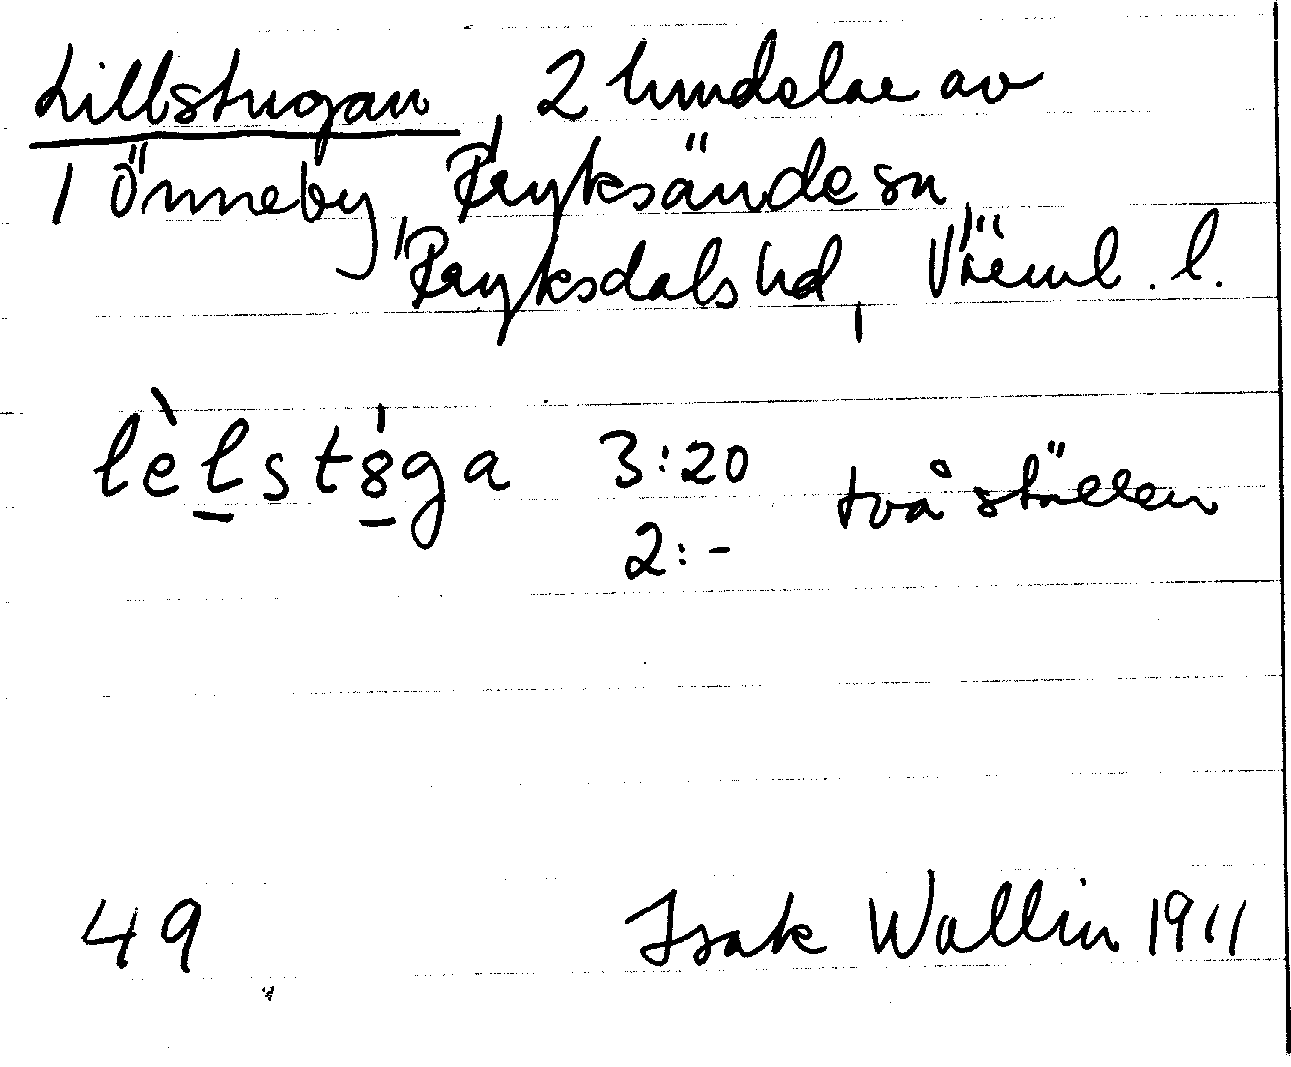 Lillstugan, 2 hmdelar av
1 Önneby, Fryksände sn
Fryksdals hd, Värml. l.
lèlstȣga 3:20 två ställen
2:-
49 Isak Wallin 1911